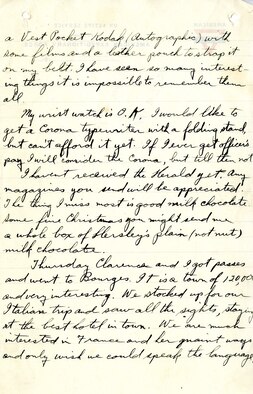 a Vest Pocket Kodak (Autographic) with
some films and a leather pouch to strap it
on my belt. I have seen so many interest-
ing things it is impossible to remember them
all.
My wrist watch is O.K. I would like to
get a Corona typewriter with a folding stand,
but can't afford it yet. If I ever get officer's
pay I will consider the Corona, but till then not.
I haven't received the Herald yet. Any
magazines you send will be appreciated.
The thing I miss most is good milk chocolate
Some fine Christmas you might send me
a whole box of Hershey's plain (not nut)
milk chocolate.
Thursday Clarence and I got passes
and went to Bourges. It is a town of 120,000
and very interesting. We stocked up for our
Italian trip and saw all the sights, staying
at the best hotel in town. We are much
interested in France and her quaint ways
and only wish we could speak the language,